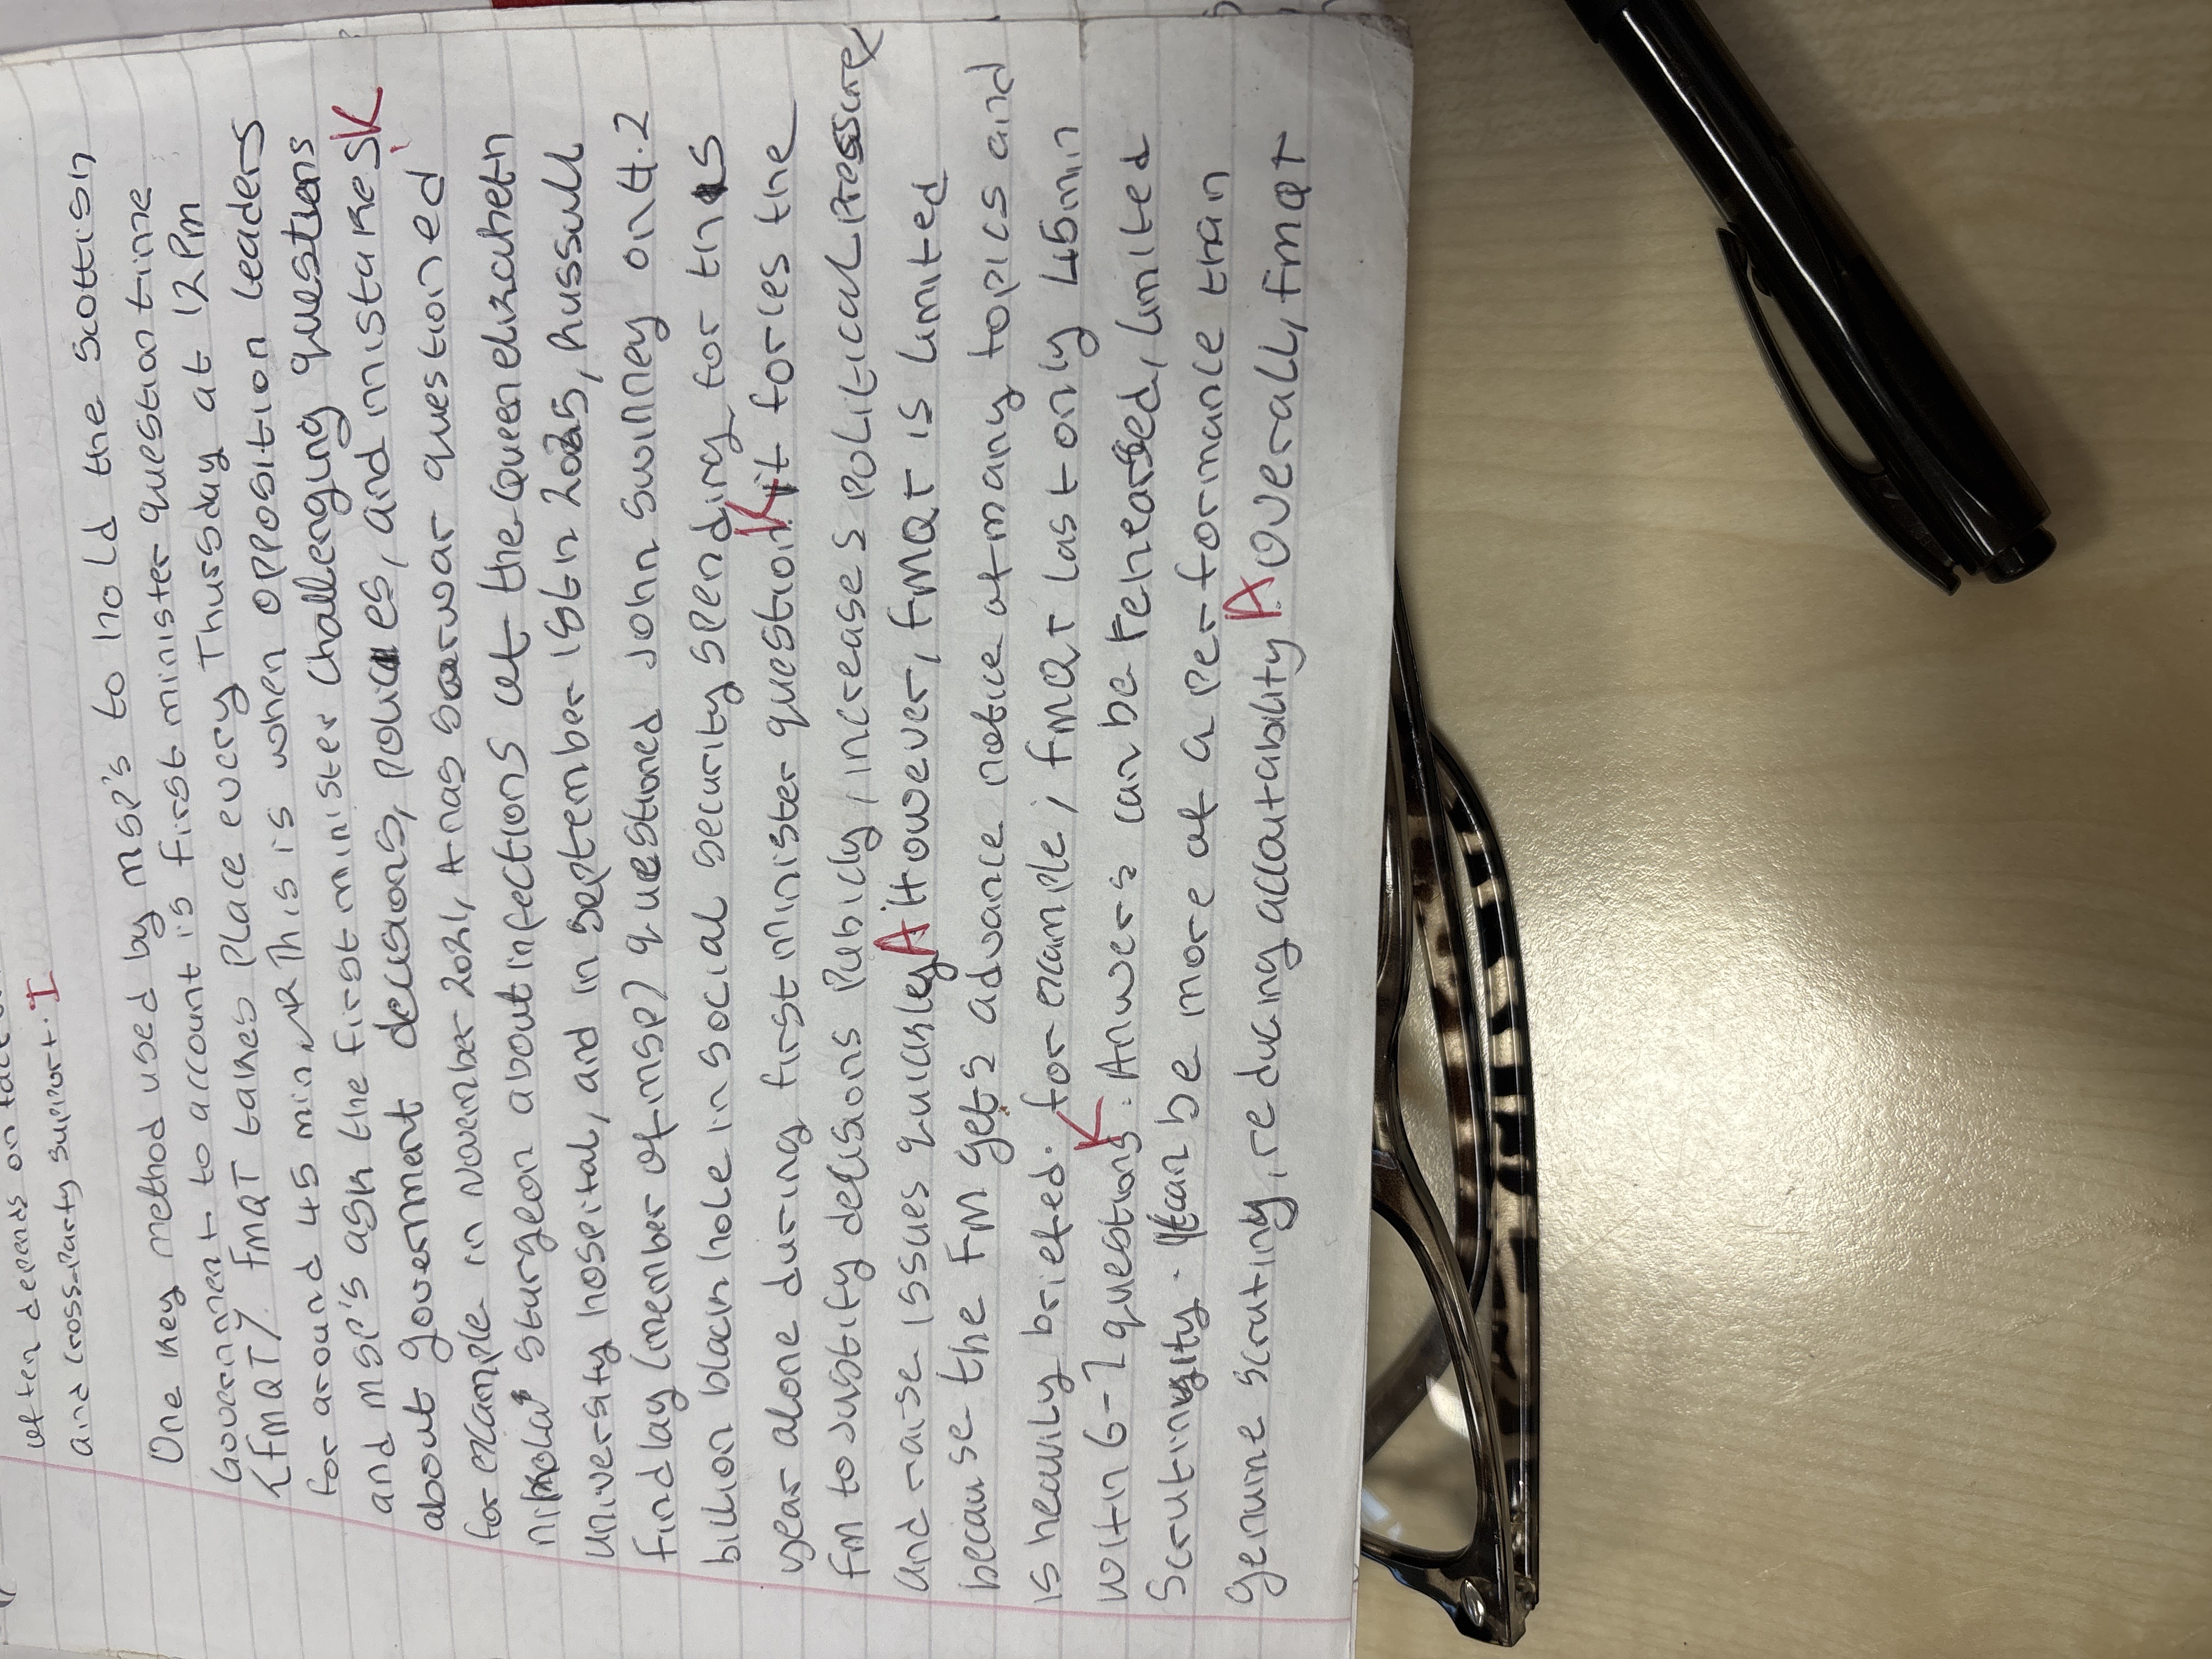 often depends on
and cross-party support. I
One key method used by msp's to hold the scottish
Government to account is first minister question time
(FMQT). FMQT takes place every Thursday at 12pm
for around 45 min. This is when opposition leaders
and msp's ask the first minister challenging questions
about government decisions, policies, and mistakes K
for example in november 2021, Anas sarwar questioned
nikola sturgeon about infections at the Queen elizabeth
university hospital, and in september 18th 2025, Russull
findlay (member of msp) questioned John swinney on 4.2
billion black hole in social security spending for this
year alone during first minister question K it forces the
fm to justify decisions publicly, increases political pressure
and raise issues quickley A However, FMQT is limited
because the FM gets advance notice of many topics and
is heavily briefed. for example, FMQT last only 45min
with 6-7 questions K. Anwers can be rehearsed, limited
scrutiny. It can be more of a performance than
genuine scrutiny, reducing accountability A overall, fmqt